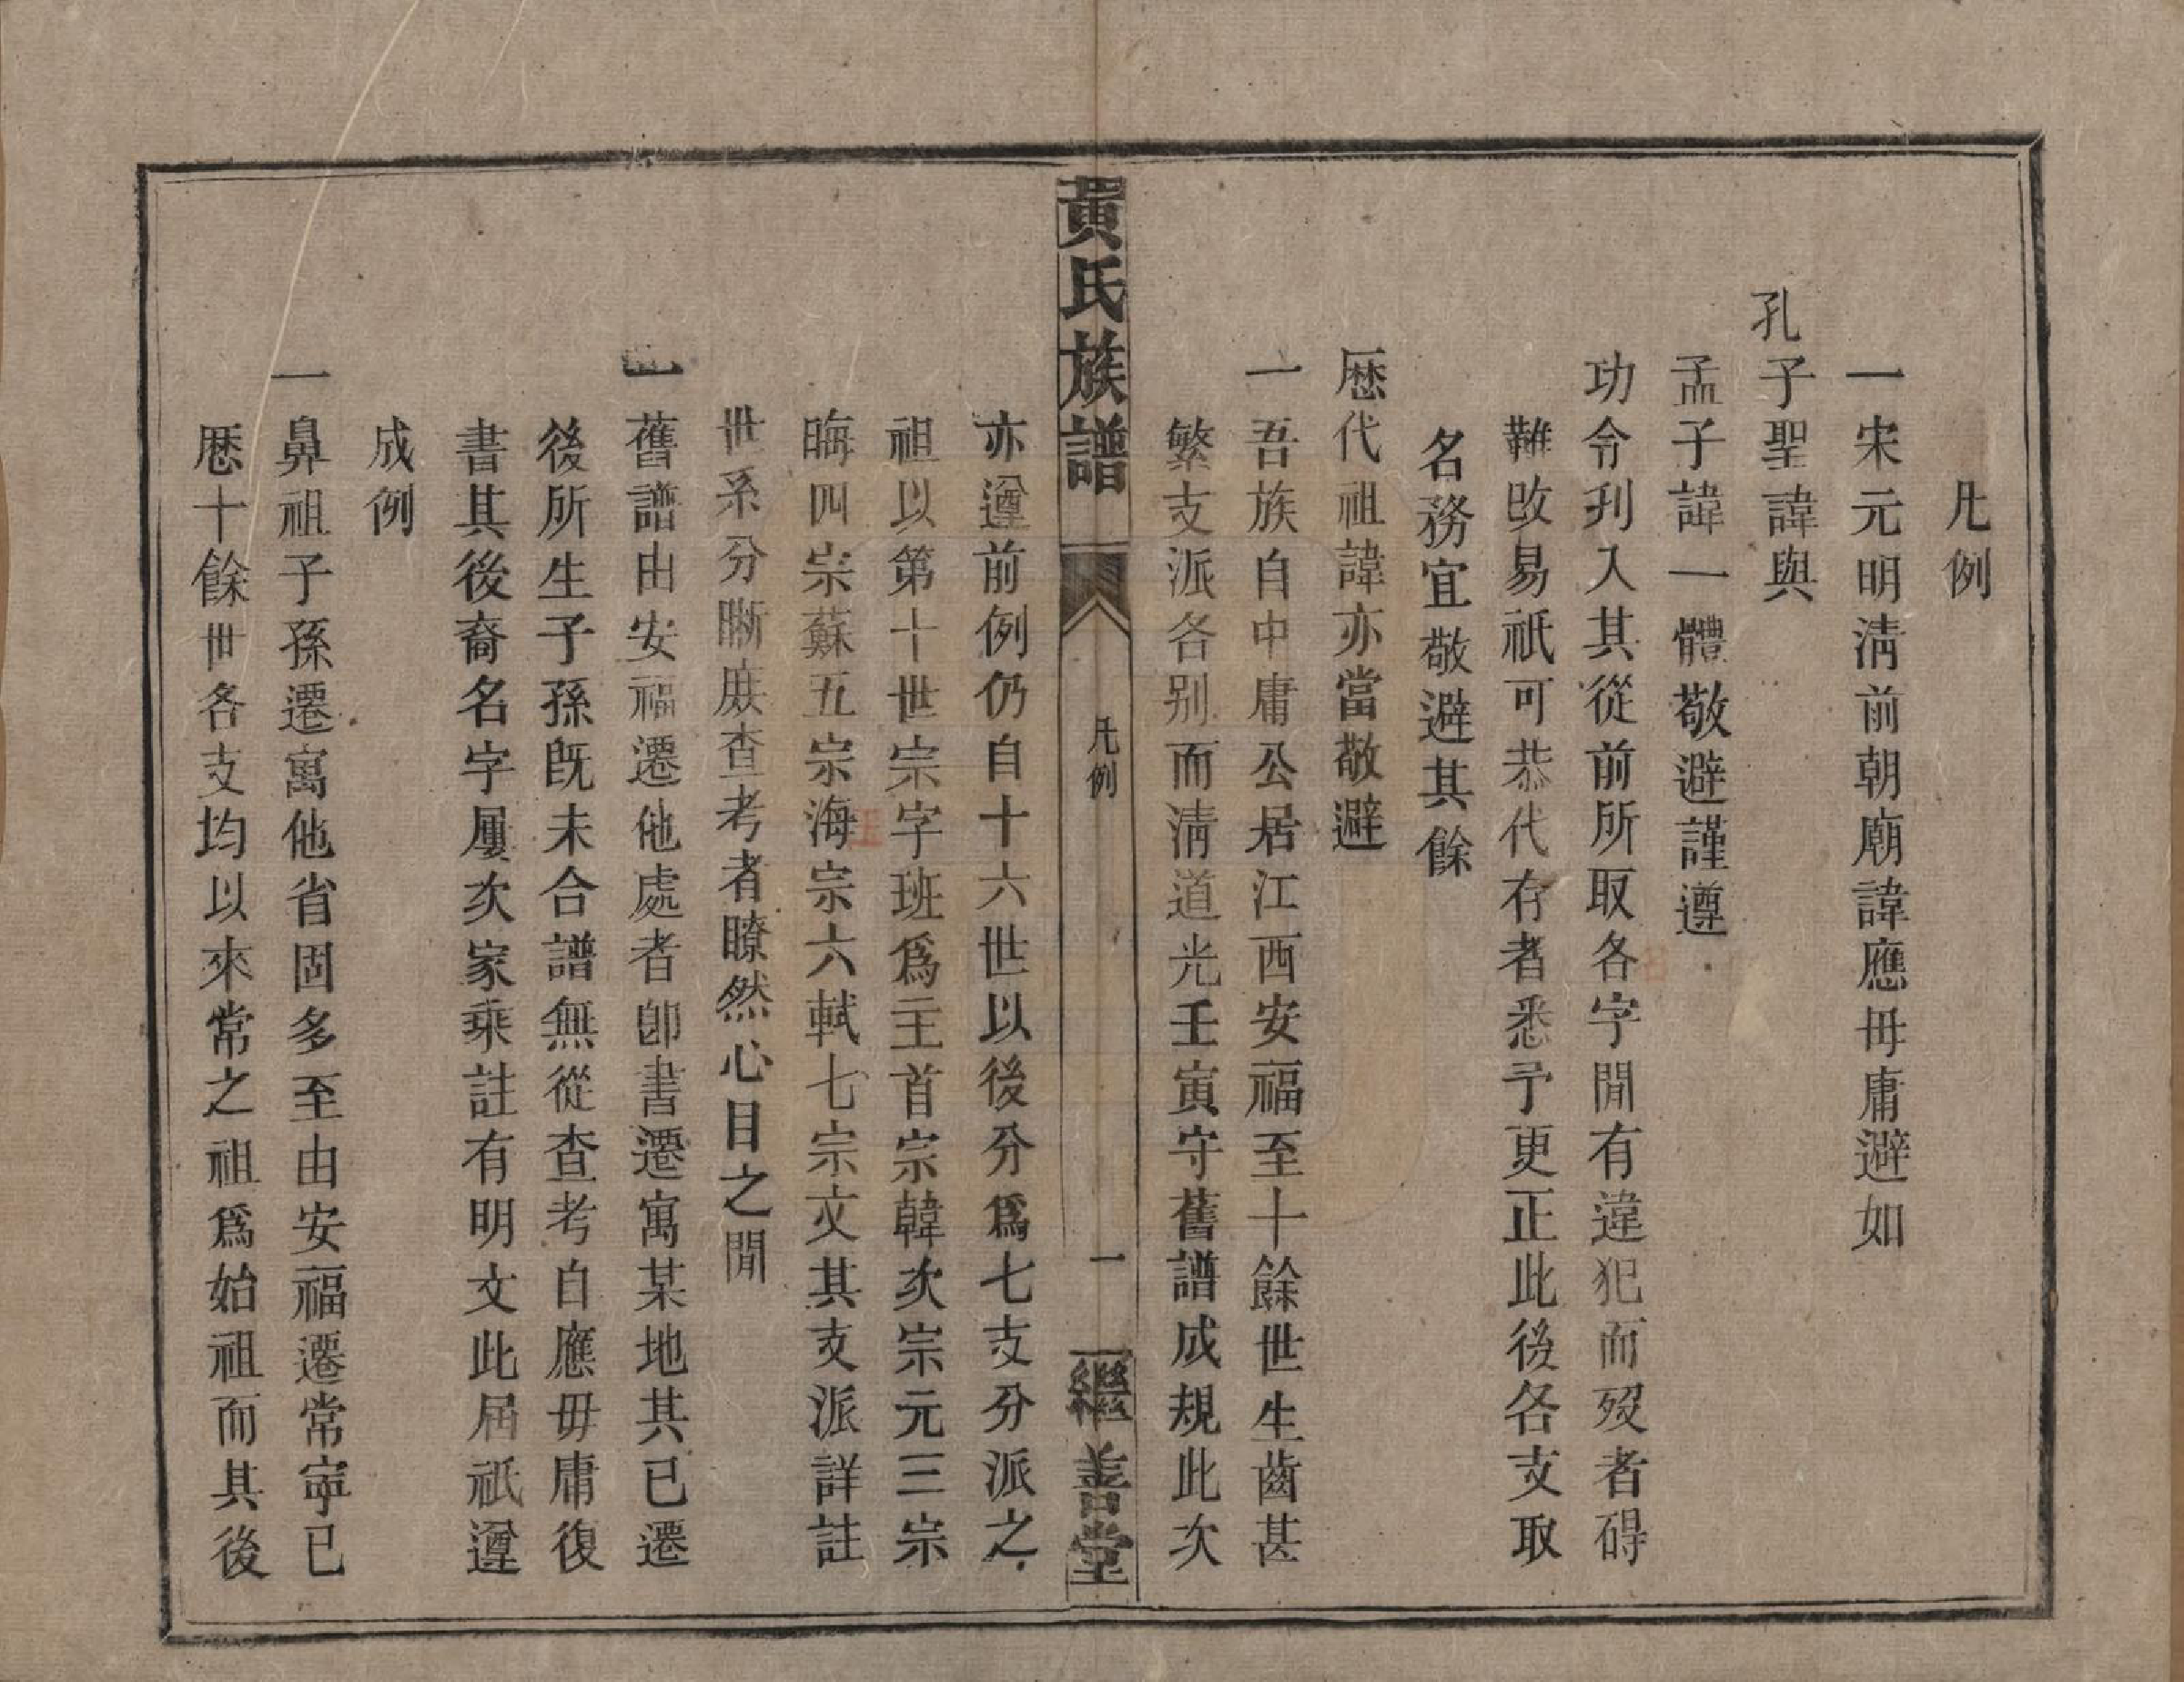 凡例
一宋元明淸前朝廟諱應毋庸避如
孔子聖諱與
孟子諱一體敬避謹遵
功令刋入其從前所取各字閒有違犯而歿者碍
難改易祇可恭代存者悉予更正此後各支取
名務宜敬避其餘
厯代祖諱亦當敬避
一吾族自中庸公居江西安福至十餘世生齒甚
繁支派各别而淸道光壬寅守舊譜成規此次
黃氏族譜 凡例 一 繼善堂
亦遵前例仍自十六世以後分爲七支分派之
祖以第十世宗字班爲主首宗韓次宗元三宗
晦四宗蘇五宗海宗六軾七宗文其支派詳註
世系分晰庶查考者瞭然心目之閒
一舊譜由安福遷他處者卽書遷寓某地其已遷
後所生子孫旣未合譜無從查考自應毋庸復
書其後裔名字屢次家乘註有明文此屆祇遵
成例
一鼻祖子孫遷寓他省固多至由安福遷常寧已
厯十餘世各支均以來常之祖爲始祖而其後